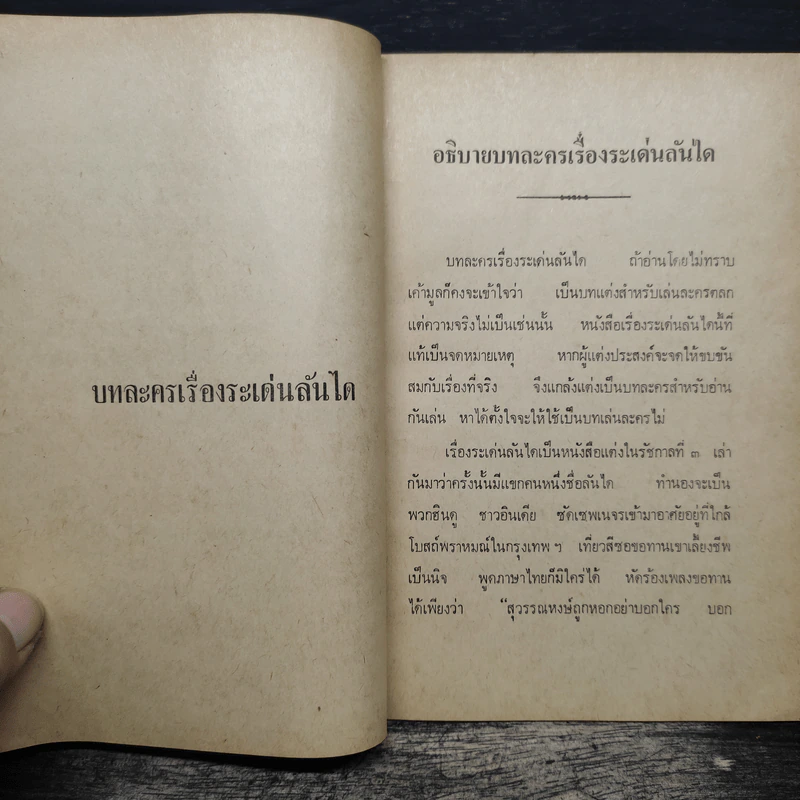 บทละครเรื่องระเด่นลันได
อธิบายบทละครเรื่องระเด่นลันได
บทละครเรื่องระเด่นลันได ถ้าอ่านโดยไม่ทราบ
เค้ามูลก็คงจะเข้าใจว่า เป็นบทแต่งสำหรับเล่นละครตลก
แต่ความจริงไม่เป็นเช่นนั้น หนังสือเรื่องระเด่นลันไดนี้ที่
แท้เป็นจดหมายเหตุ หากผู้แต่งประสงค์จะจดให้ขบขัน
สมกับเรื่องที่จริง จึงแกล้งแต่งเป็นบทละครสำหรับอ่าน
กันเล่น หาได้ตั้งใจจะให้ใช้เป็นบทเล่นละครไม่
เรื่องระเด่นลันไดเป็นหนังสือแต่งในรัชกาลที่ ๓ เล่า
กันมาว่าครั้งนั้นมีแขกคนหนึ่งชื่อลันได ทำนองจะเป็น
พวกฮินดู ชาวอินเดีย ซัดเซพเนจรเข้ามาอาศัยอยู่ที่ใกล้
โบสถ์พราหมณ์ในกรุงเทพ ฯ เที่ยวสีซอขอทานเขาเลี้ยงชีพ
เป็นนิจ พูดภาษาไทยก็มิใคร่ได้ หัดร้องเพลงขอทาน
ได้เพียงว่า “สุวรรณหงษ์ถูกหอกอย่าบอกใคร บอก